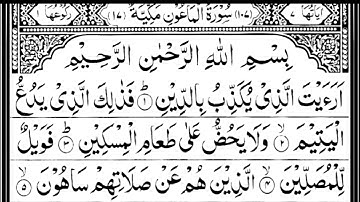 اٰیَاتُهَا ٧ (١٠٧) سُوْرَةُ الْمَاعُوْنِ مَكِّيَّةٌ (١٧) رُكُوْعُهَا ١
بِسْمِ اللّٰهِ الرَّحْمٰنِ الرَّحِيْمِ
اَرَءَيْتَ الَّذِيْ يُكَذِّبُ بِالدِّيْنِ ۝١ فَذٰلِكَ الَّذِيْ يَدُعُّ
الْيَتِيْمَ ۝٢ وَلَا يَحُضُّ عَلٰى طَعَامِ الْمِسْكِيْنِ ۝٣ فَوَيْلٌ
لِّلْمُصَلِّيْنَ ۝٤ الَّذِيْنَ هُمْ عَنْ صَلَاتِهِمْ سَاهُوْنَ ۝٥